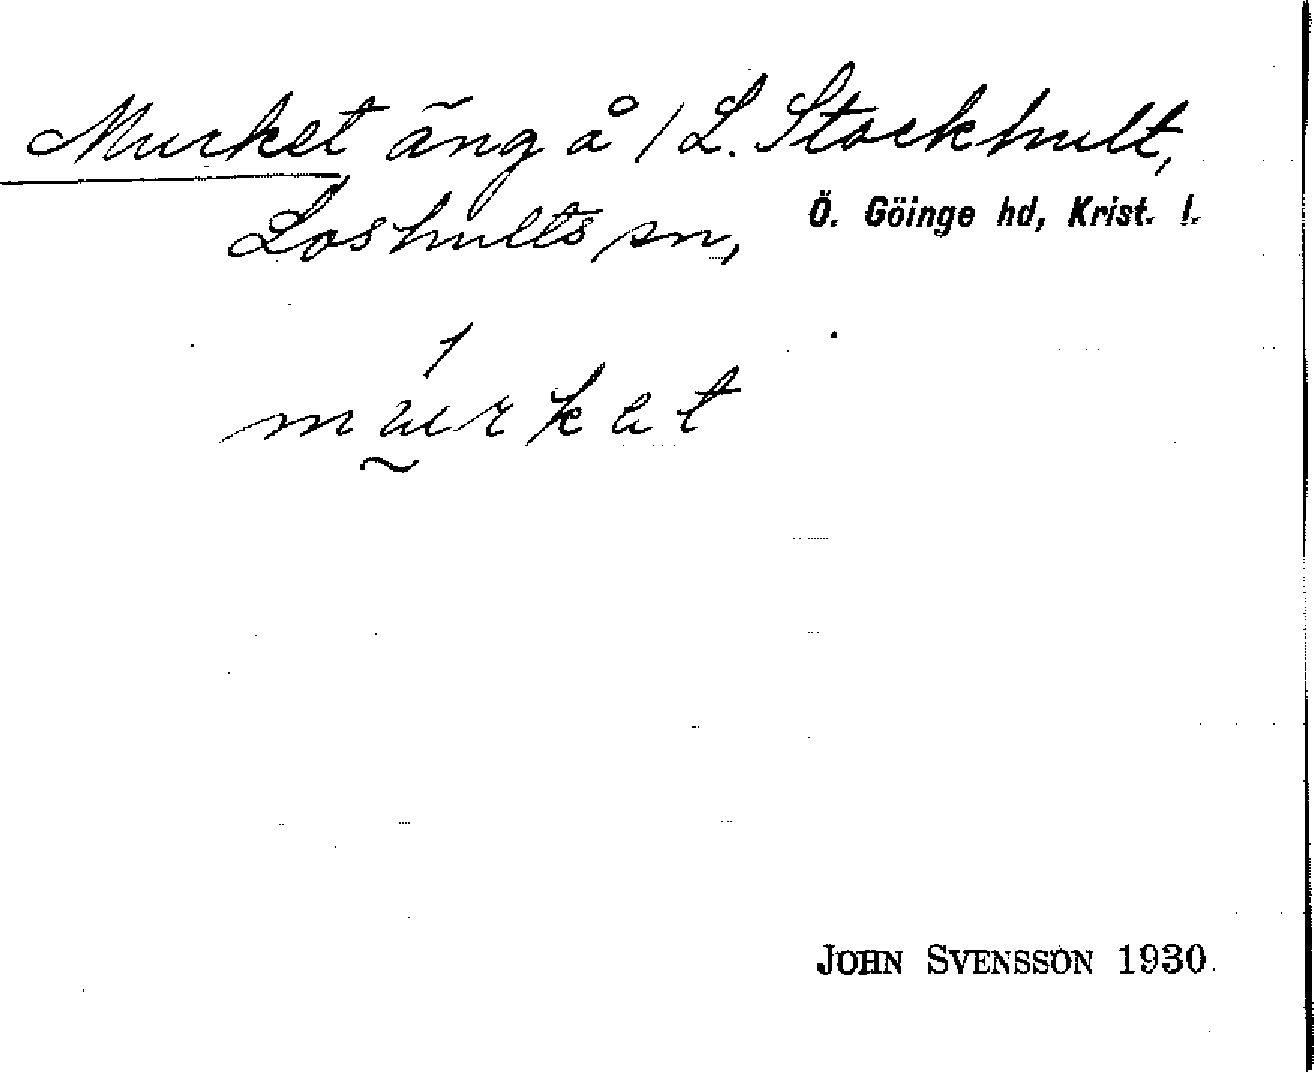 Murket äng å 1 L. Stockhult,
Loshults sn, Ö. Göinge hd, Krist. l.
JOHN SVENSSON 1930.